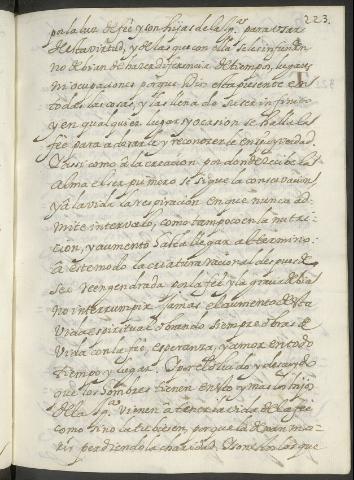 223.
por la luz de fee y son hijas de la Igª. para usar
de esta virtud, y de las que con ella se les infunden
no debian de hazer diferencia de tiempo, lugares
ni ocupaciones porque Dios esta presente en
todas las cosas, y las llena de su ser infinito
y en qualquier lugar y ocasion se halla la
fee para adorarle y reconocerle en spu y verdad.
Y asi como a la creacion por donde recibe la
Alma el ser primero se sigue la conservacion
y a la vida la respiracion en que nunca ad-
mite intervalo, como tampoco en la nutri-
cion, y aumento hasta llegar al termino:
a este modo la criatura racional despues de
ser reengendrada por la fee y la gracia debia
no interrumpir jamas el aumento de esta
vida espiritual obrando siempre obras de
vida con la fee, esperanza, y amor en todo
tiempo y lugar. Y por el olvido y descuydo
que los hombres tienen en esto y mas los hijos
de la Igª. vienen a tener la vida de la fee
como si no la tubiesen, porque la dexan mo-
rir perdiendo la charidad. Y son estos los que